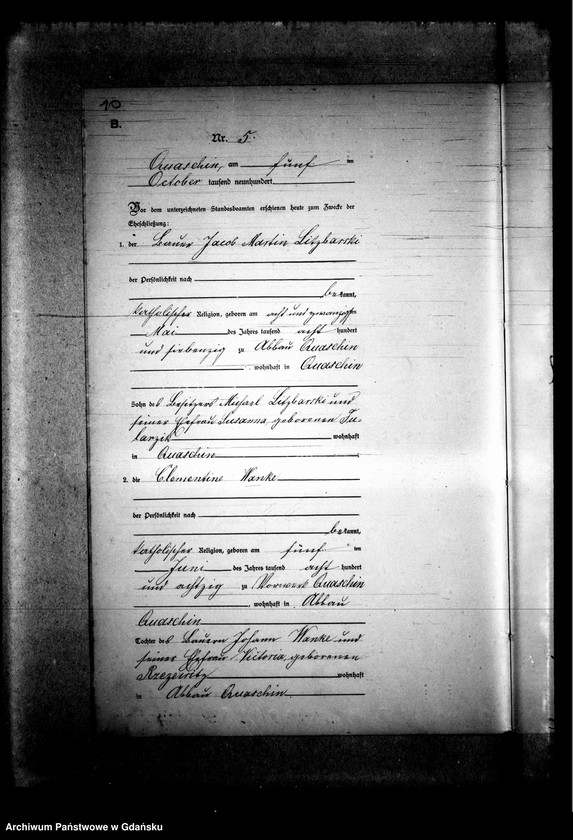 10
B.
Nr. 5.
Quaschin, am fünf ten
October tausend neunhundert
Vor dem unterzeichneten Standesbeamten erschienen heute zum Zwecke der
Eheschließung:
1. der Bauer Jacob Martin Litzbarski
der Persönlichkeit nach
bekannt,
katholischer Religion, geboren am acht und zwanzigsten
Mai des Jahres tausend acht hundert
und siebenzig zu Abbau Quaschin
, wohnhaft in Quaschin
Sohn des Besitzers Michael Litzbarski und
seiner Ehefrau Susanna, geborenen
wohnhaft
in Quaschin
2. die Clementine Wanke
der Persönlichkeit nach
bekannt,
katholischer Religion, geboren am fünf ten
Juni des Jahres tausend acht hundert
und achtzig zu Vorwerk Quaschin
, wohnhaft in Abbau
Quaschin
Tochter des Bauern Johann Wanke und
seiner Ehefrau Victoria, geborenen
wohnhaft
in Abbau Quaschin
Archiwum Państwowe w Gdańsku